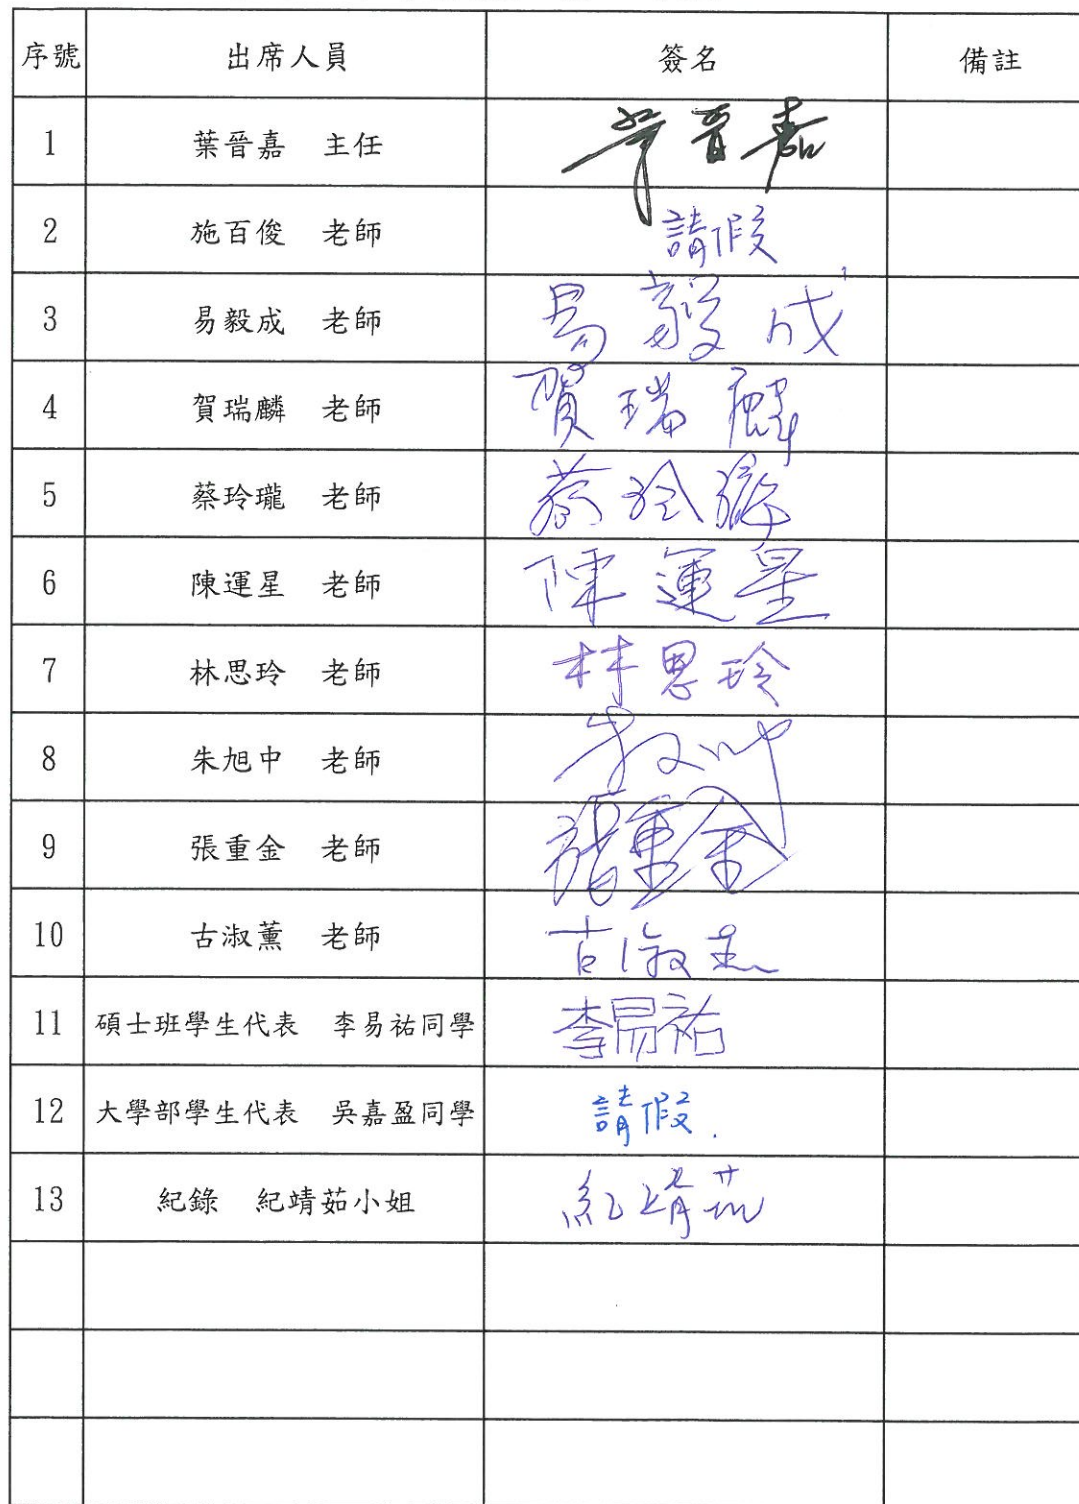 序號 出席人員 簽名 備註
1 葉晉嘉 主任 葉晉嘉
2 施百俊 老師 請假
3 易毅成 老師 易毅成
4 賀瑞麟 老師 賀瑞麟
5 蔡玲瓏 老師 蔡玲瓏
6 陳運星 老師 陳運星
7 林思玲 老師 林思玲
8 朱旭中 老師
9 張重金 老師 張重金
10 古淑薰 老師 古淑薰
11 碩士班學生代表 李易祐同學 李易祐
12 大學部學生代表 吳嘉盈同學 請假.
13 紀錄 紀靖茹小姐 紀靖茹